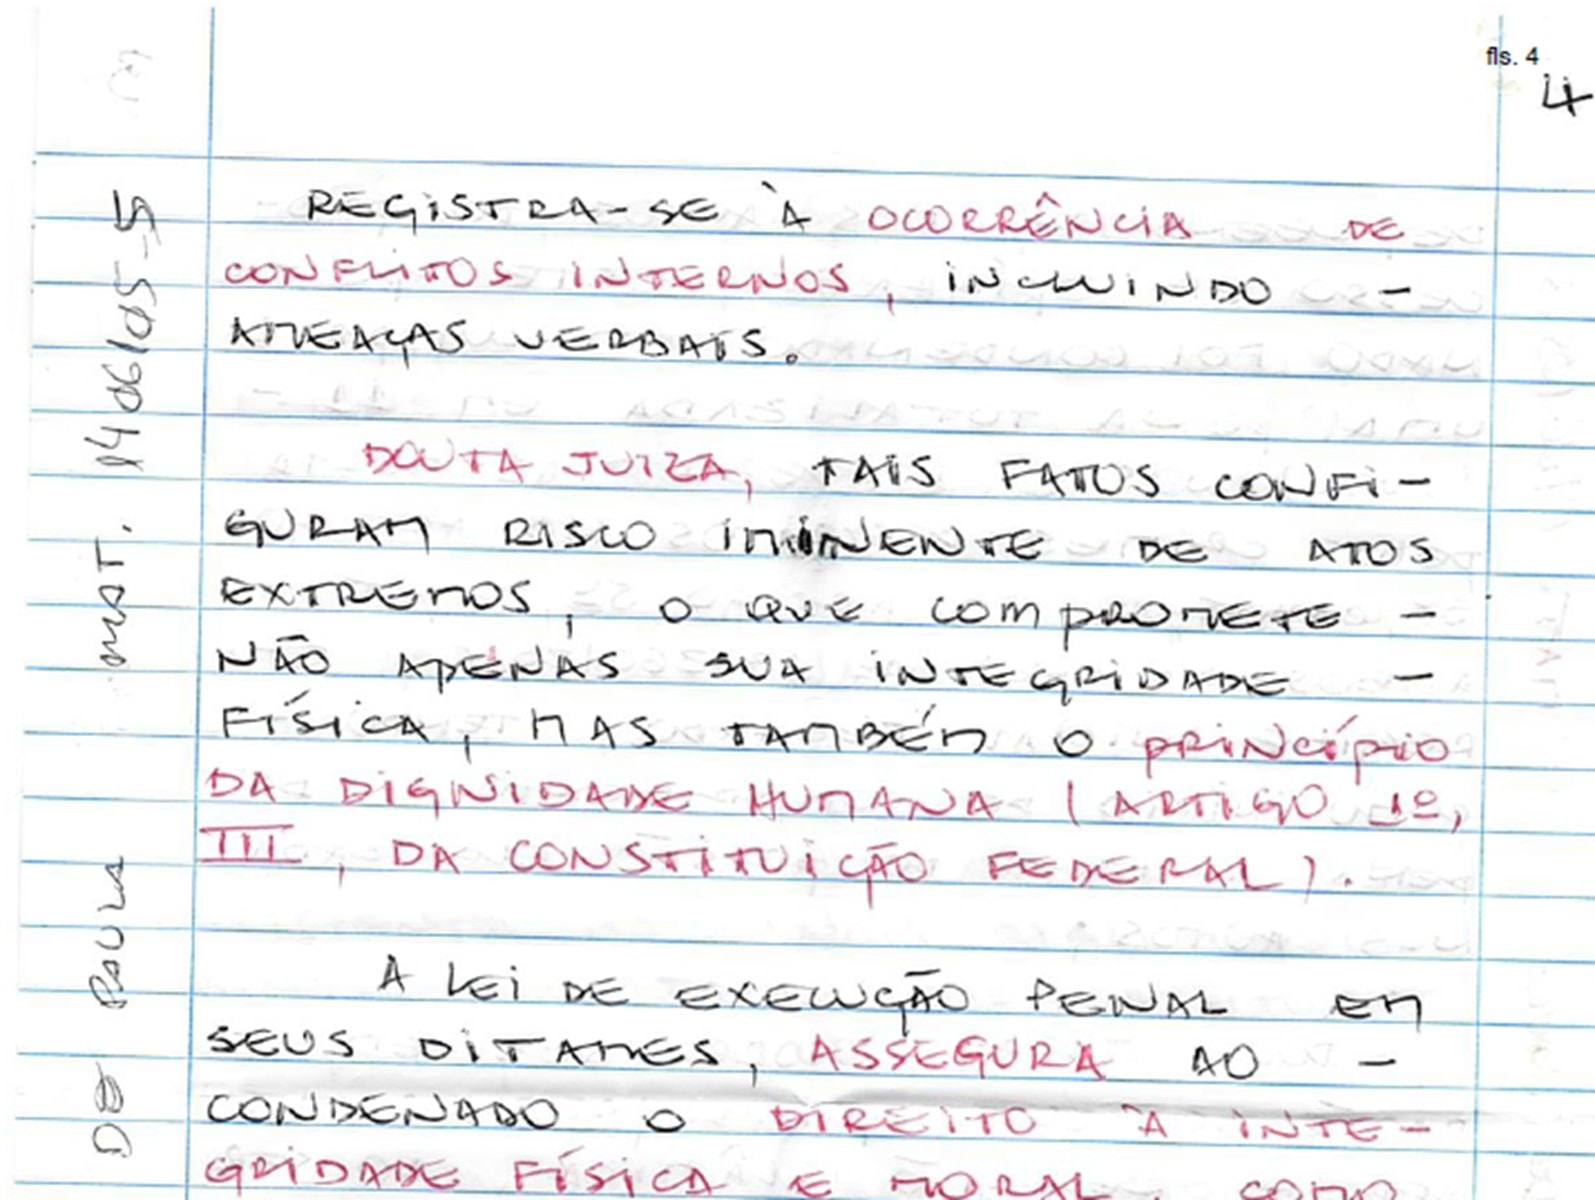 fls. 4
4
REGISTRA-SE À OCORRÊNCIA DE
CONFLITOS INTERNOS, INCLUINDO -
AMEAÇAS VERBAIS.
DOUTA JUIZA, TAIS FATOS CONFI-
GURAM RISCO IMINENTE DE ATOS
EXTREMOS, O QUE COMPROMETE -
NÃO APENAS SUA INTEGRIDADE -
FÍSICA, MAS TAMBÉM O PRINCÍPIO
DA DIGNIDADE HUMANA (ARTIGO 1º,
III, DA CONSTITUIÇÃO FEDERAL).
A LEI DE EXECUÇÃO PENAL EM
SEUS DITAMES, ASSEGURA AO -
CONDENADO O DIREITO À INTE-
GRIDADE FÍSICA E MORAL, COMO
DE PAULA MAT.